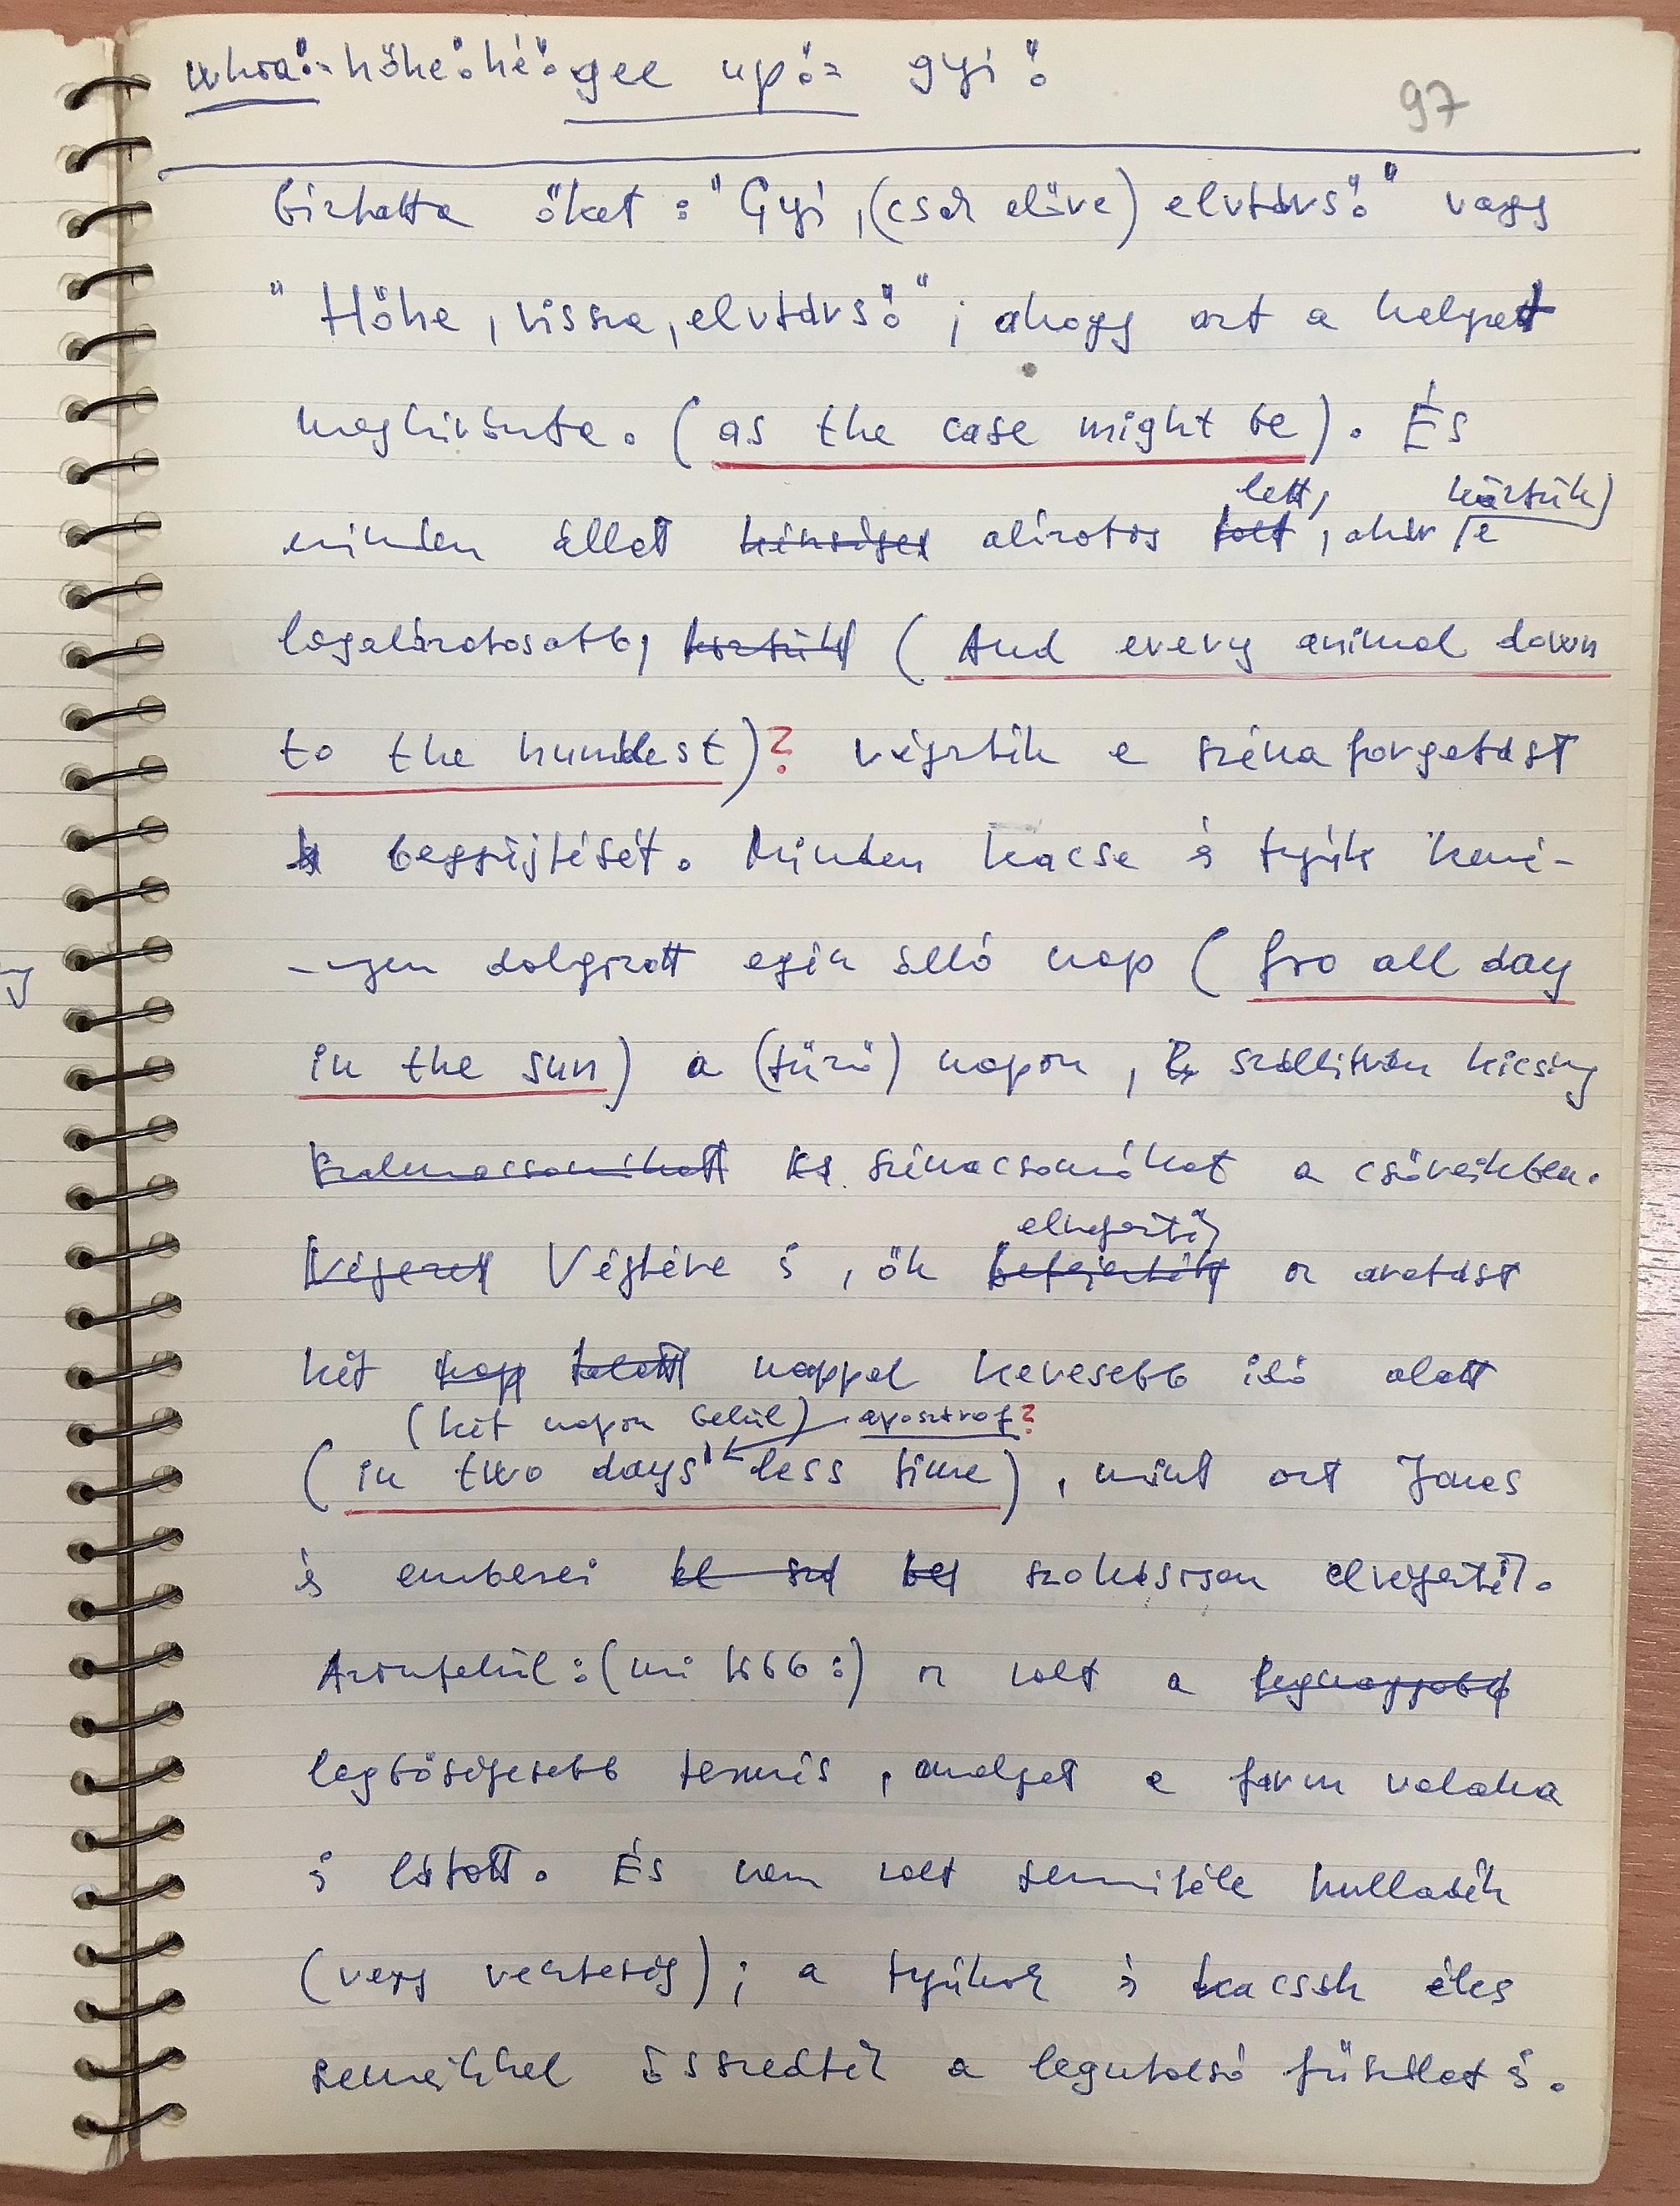 whoa!= hőhe! hé! gee up!= gyi!
97
bíztatta őket: "Gyi, (csak előre) elvtárs!" vagy
"Hőhe, vissza, elvtárs!"; ahogy azt a helyzet
megkívánta. (as the case might be). És
lett, köztük)
minden állat alázatos volt, akár (a
legalázatosabb, köztük (And every animal down
to the humblest)? végezték a széna forgatást
begyűjtését. Minden kacsa és tyúk kemé-
-nyen dolgozott egész álló nap (fro all day
in the sun) a (tűző) napon, szállítván kicsiny
szalmacsomókat kis szénacsomókat a csőreikben.
elvégezték
Végezet Végtére is, ők befejezték az aratást
két nap alatt nappal kevesebb idő alatt
(két napon belül) aposztrof?
(in two days' less time), mint azt Jones
és emberei szokásosan elvégezték.
Azonfelül: (mi több:) ez volt a legnagyobb
legbőségesebb termés, amelyet a farm valaha
is látott. És nem volt semmiféle hulladék
(vagy veszteség); a tyúkok és kacsák éles
szemeikkel összedték a legutolsó fűszálat is.